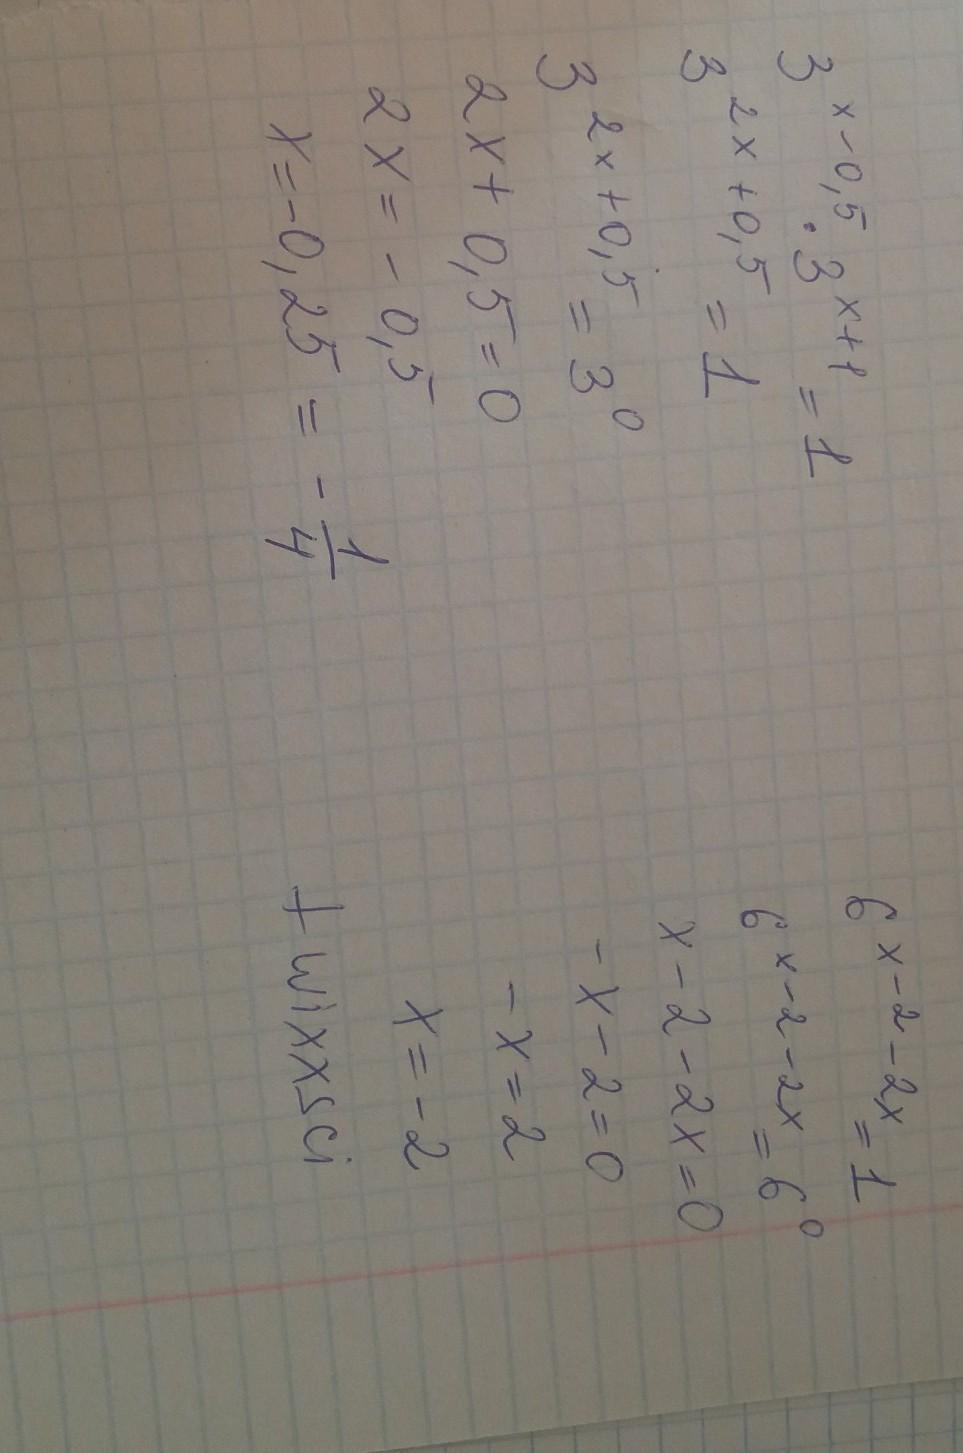 3^{x-0,5} · 3^{x+1} = 1
3^{2x+0,5} = 1
3^{2x+0,5} = 3^0
2x + 0,5 = 0
2x = - 0,5
x = -0,25 = - 1/4
6^{x-2-2x} = 1
6^{x-2-2x} = 6^0
x - 2 - 2x = 0
- x - 2 = 0
- x = 2
x = - 2